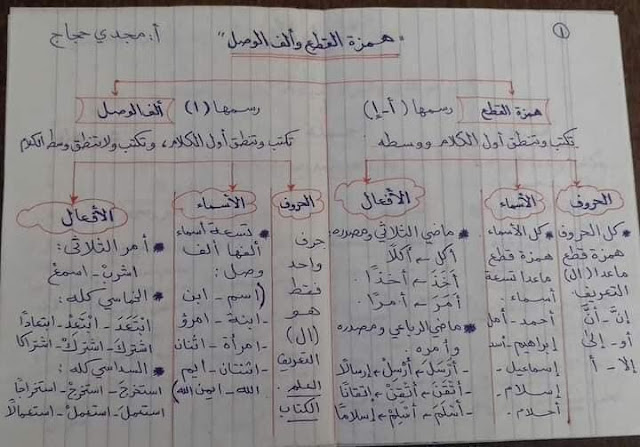 ١
أ. مجدي حجاج
"همزة القطع وألف الوصل"
همزة القطع رسمها (أ-إ)
تكتب وتنطق أول الكلام ووسطه.
الحروف
* كل الحروف
همزة قطع
ماعدا (ال)
التعريف.
إنَّ - أنَّ
أو - إلى
إلا - أ
الأسماء
* كل الأسماء
همزة قطع
ماعدا تسعة
أسماء.
أحمد - أمل
إبراهيم - أسد
إسماعيل -
إسلام -
أحلام.
الأفعال
* ماضي الثلاثي ومصدره
أكل - أكلًا
أخَذَ - أخذًا.
أمَرَ - أمرًا.
* ماضي الرباعي ومصدره
وأمره:
- أرْسَلَ - أرْسِلْ - إرسالًا
- أتْقَنَ - أتْقِنْ - إتقانًا
- أسْلَمَ - أسْلِمْ - إسلامًا
ألف الوصل رسمها (ا)
تكتب وتنطق أول الكلام، وتكتب ولا تنطق وسط الكلام
الحروف
حرف
واحد
فقط
هو
(ال)
التعريف
العلم.
الكتاب
الأسماء
* تسعة أسماء
ألفها ألف
وصل:
(اسم - ابن
- ابنة - امرؤ
- امرأة - اثنان
- اثنتان - ايم
الله - ايمن الله)
الأفعال
* أمر الثلاثي:
اشربْ - اسمعْ
* الخماسي كله:
ابْتَعَدَ - ابْتَعِدْ - ابتعادًا
اشتركَ - اشتركْ - اشتراكًا
* السداسي كله:
استخرجَ - استخرجْ - استخراجًا
استعملَ - استعملْ - استعمالًا